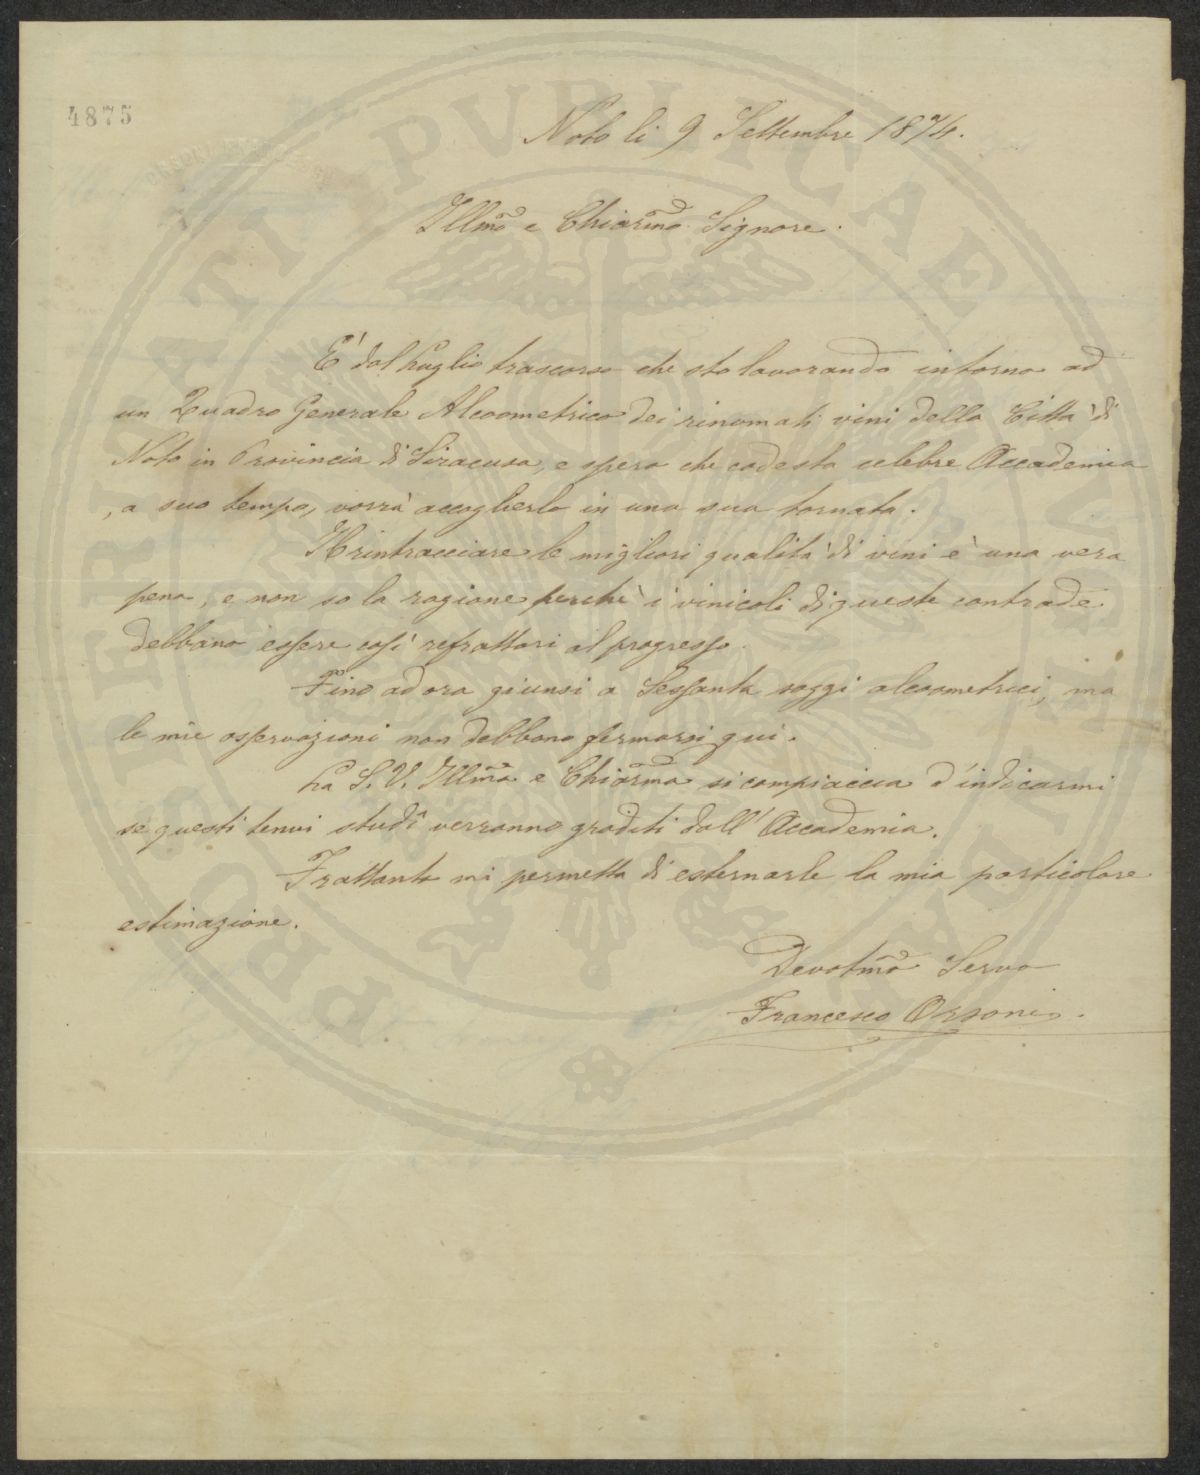 4875
Noto li 9 Settembre 1874.
Illmo e Chiarmo Signore.
E' dal Luglio trascorso che sto lavorando intorno ad
un Quadro Generale Alcoometrico dei rinomati vini della Città di
Noto in Provincia di Siracusa, e spero che codesta celebre Accademia
, a suo tempo, vorrà accoglierlo in una sua tornata.
Il rintracciare le migliori qualità di vini è una vera
pena, e non so la ragione perchè i vinicoli di queste contrade
debbano essere così refrattari al progresso.
Fino ad ora giunsi a Sessanta saggi alcoometrici, ma
le mie osservazioni non debbono fermarsi qui.
La S. V. Illma e Chiarma si compiaccia d'indicarmi
se questi tenui studî verranno graditi dall'Accademia.
Frattanto mi permetta di esternarle la mia particolare
estimazione.
Devotmo Servo
Francesco Orsoni.
PROSPERITATI PVBLICAE AVGENDAE